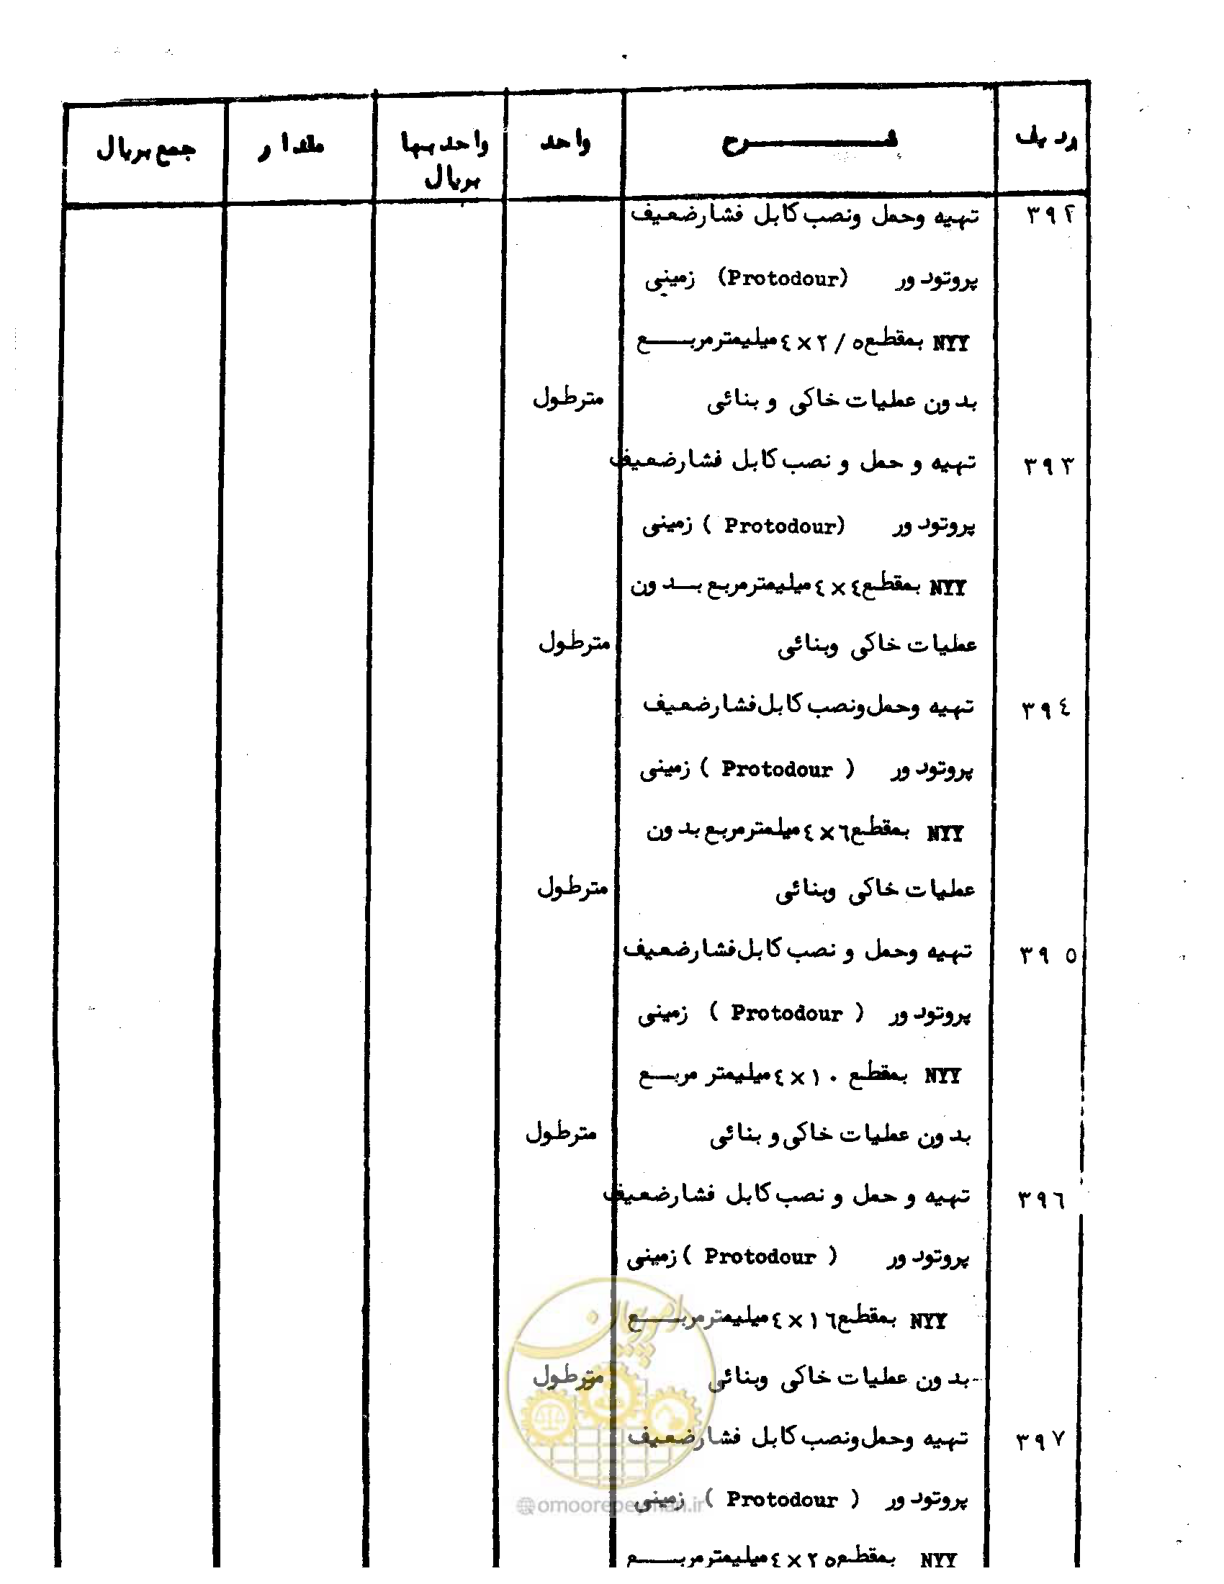 ردیف شرح واحد واحد بها بریال مقدار جمع بریال
۳۹۲ تهیه وحمل ونصب کابل فشارضعیف
پروتودور (Protodour) زمینی
NYY بمقطع ۲/۵×٤ میلیمترمربع
بدون عملیات خاکی و بنائی مترطول
۳۹۳ تهیه و حمل و نصب کابل فشارضعیف
پروتودور (Protodour) زمینی
NYY بمقطع ٤×٤ میلیمترمربع بدون
عملیات خاکی وبنائی مترطول
۳۹٤ تهیه وحمل ونصب کابل فشارضعیف
پروتودور (Protodour) زمینی
NYY بمقطع ٦×٤ میلمترمربع بدون
عملیات خاکی وبنائی مترطول
۳۹۵ تهیه وحمل و نصب کابل فشارضعیف
پروتودور (Protodour) زمینی
NYY بمقطع ۱۰×٤ میلیمتر مربع
بدون عملیات خاکی و بنائی مترطول
۳۹٦ تهیه و حمل و نصب کابل فشارضعیف
پروتودور (Protodour) زمینی
NYY بمقطع ۱٦×٤ میلیمترمربع
بدون عملیات خاکی وبنائی مترطول
۳۹۷ تهیه وحمل ونصب کابل فشارضعیف
پروتودور (Protodour) زمینی
NYY بمقطع ۲۵×٤ میلیمترمربع
امور پیمان
@omoorepeyman.ir